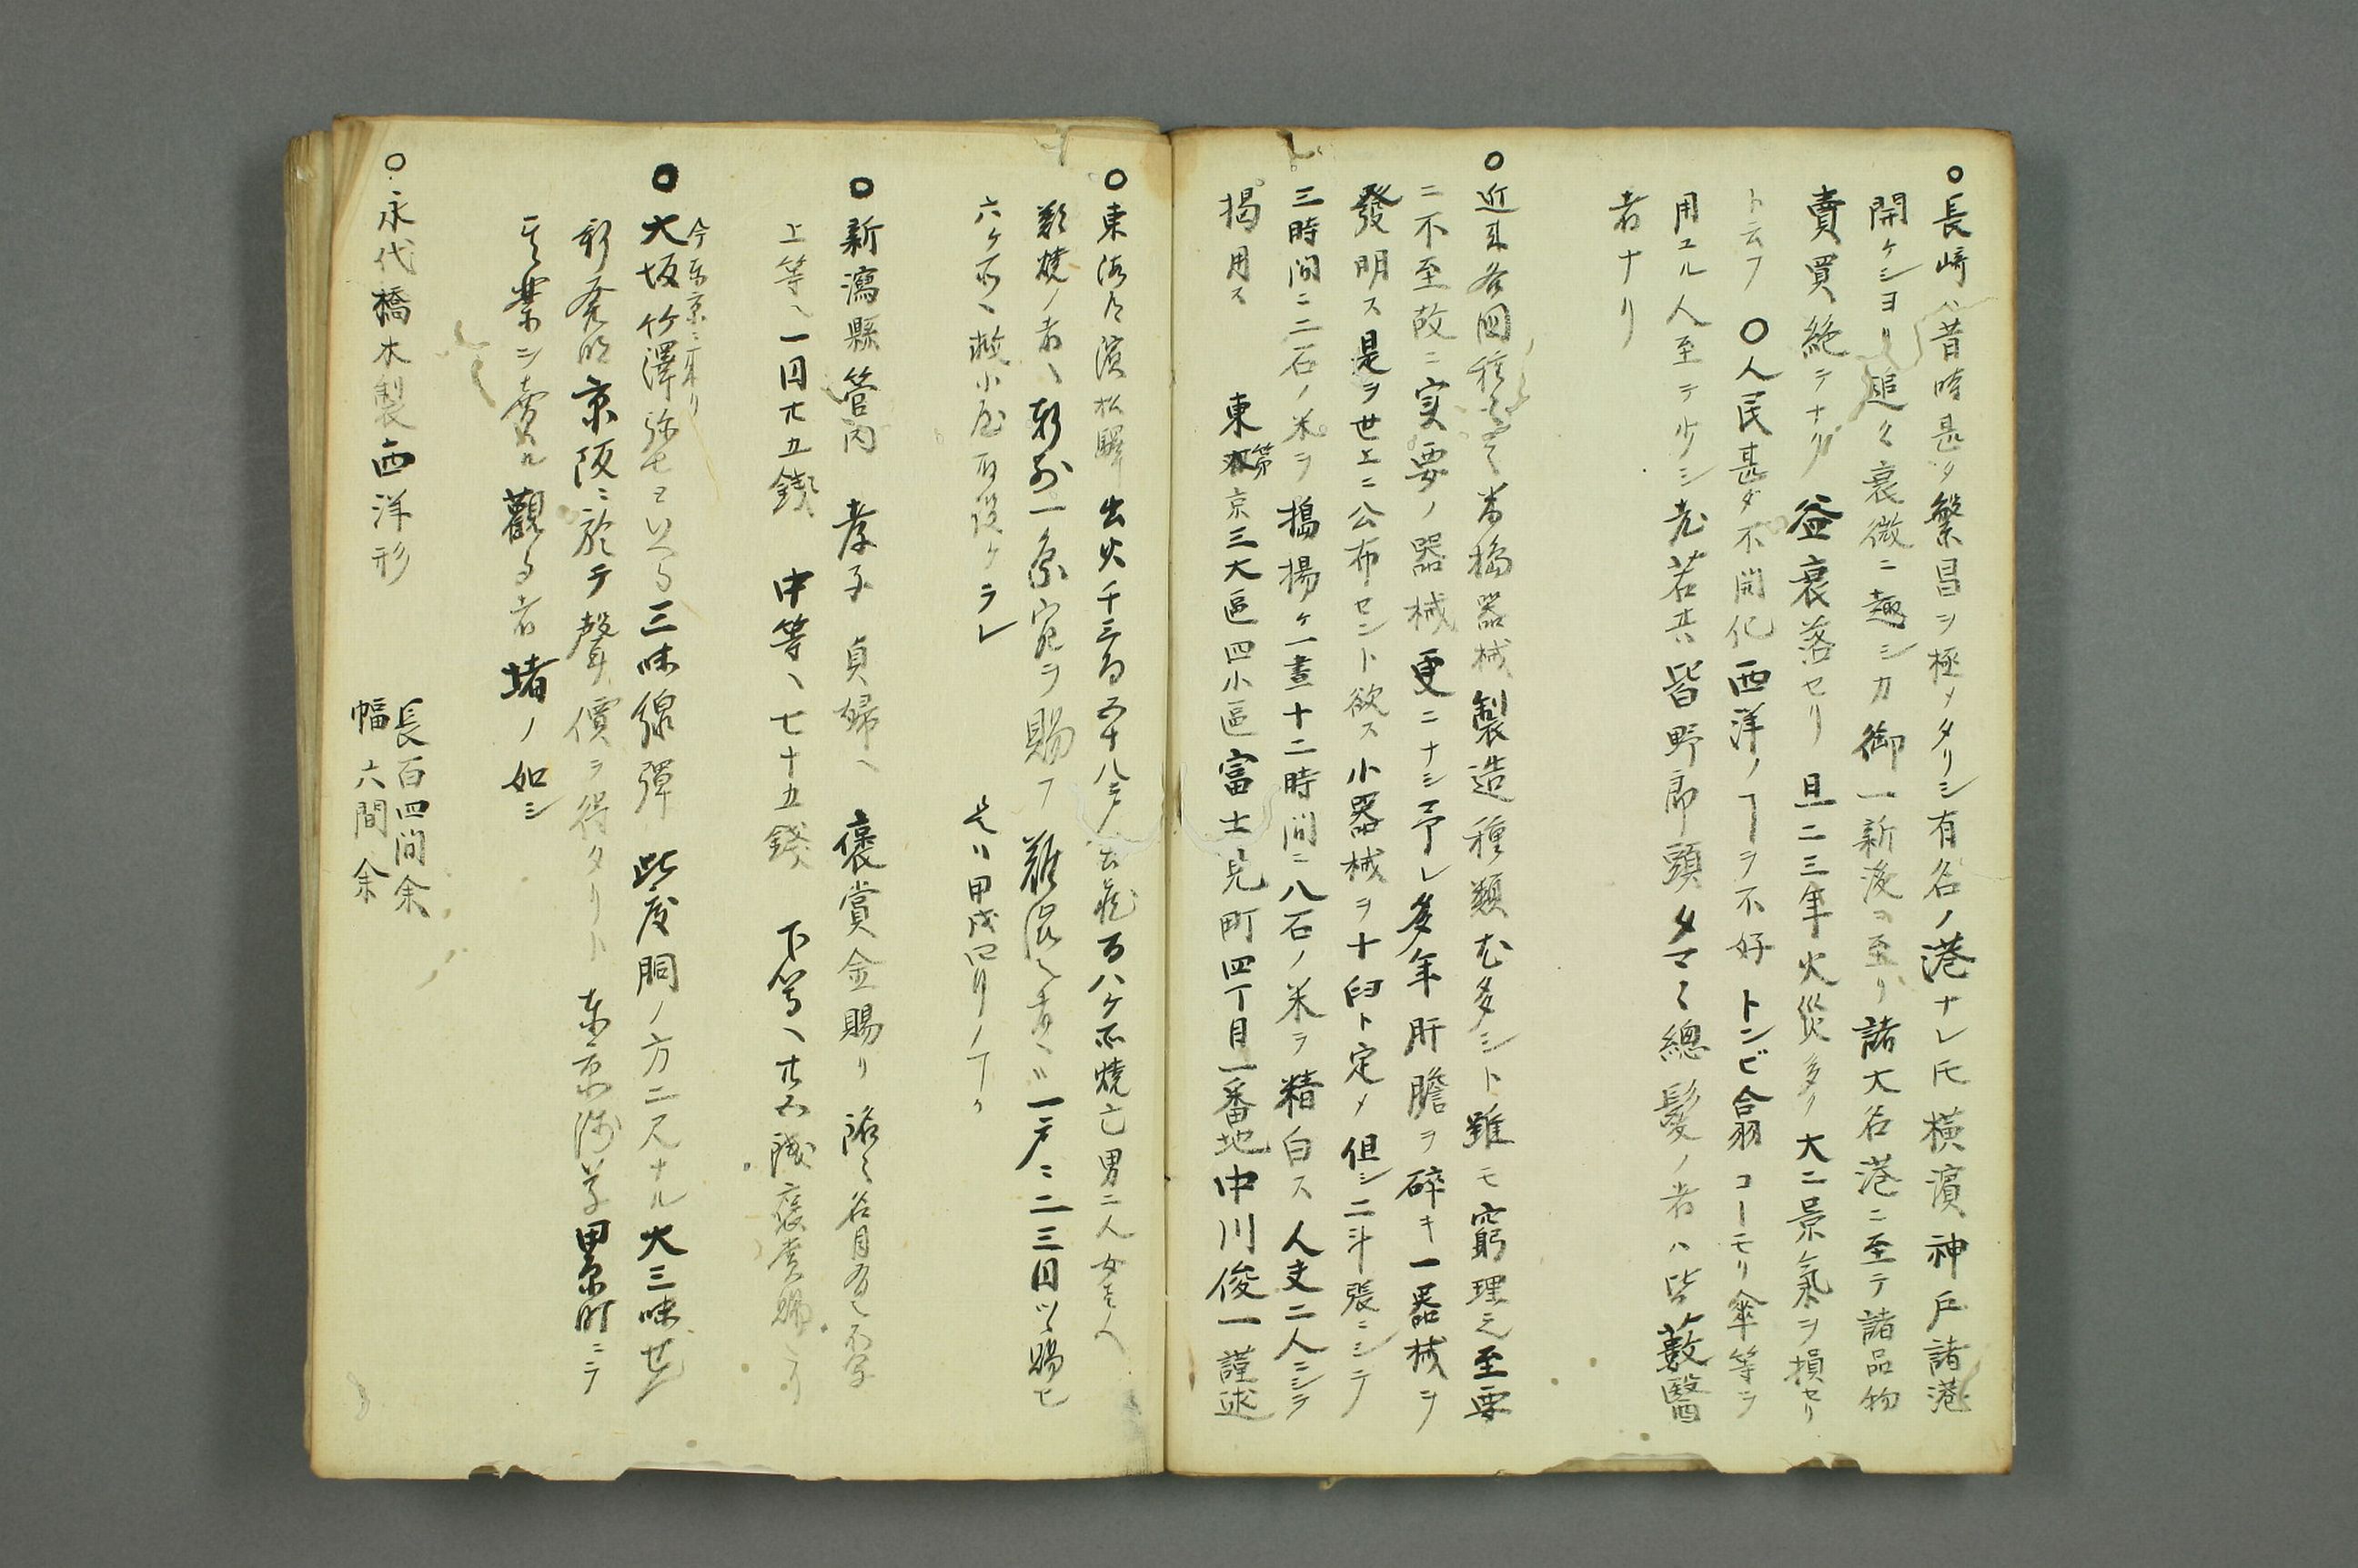 ○長崎ハ昔時甚タ繁昌ヲ極メタリシ有名ノ港ナレ𪜈横濵神戸諸港
開ケシヨリ追々衰微ニ趣シカ御一新後ヨ至リ諸大名港ニ至テ諸品物
賣買絶テナク益衰落セリ且二三年火災多ク大ニ景氣ヲ損セリ
ト云フ ○人民甚ダ不開化西洋ノヿヲ不好トンビ合羽コーモリ傘等ヲ
用ユル人至テ少シ老若共皆野郎頭タマ〻總髪ノ者ハ皆藪醫
者ナリ
○近来各國種々之舂搗器械製造種類尤多シト雖モ窮理之至要
ニ不至故ニ実要ノ器械更ニナシ予レ多年肝膽ヲ碎キ一器械ヲ
發明ス是ヲ世上ニ公布セント欲ス小器械ヲ十臼ト定メ但シ二斗張ニシテ
三時間ニ二石ノ米ヲ搗揚ケ一晝十二時間ニ八石ノ米ヲ精白ス人支二人ニシテ
揚用ス 東京第三大區四小區富士見町四丁目一番地中川俊一謹述
○東海道濵松驛出火千三百五十八戸土蔵百八ケ所焼亡男二人女壱人
類焼ノ者ヘ朝別一倉宛ヲ賜フ難渋之者ヘハ一戸ニ二三円ツヽ賜セ
六ケ所ヘ救小屋取設ケラレ 是ハ甲戌四月ノヿカ
○新瀉縣管内 孝子 貞婦ヘ 褒賞金賜リ
上等ヘ一円廿五錢 中等ヘ七十五錢 下等ヘ廿五錢褒賞賜フ
今東京ニ来リ
○大坂竹澤弥七ト以へる三味線彈 此度胴ノ方二尺ナル大三味せん
新発明京阪ニ於テ聲價ヲ得タリト 東京浅草田原町ニテ
其業ヲ賣ル觀る者堵ノ如シ
○永代橋木製西洋形
長百四間余
幅六間余